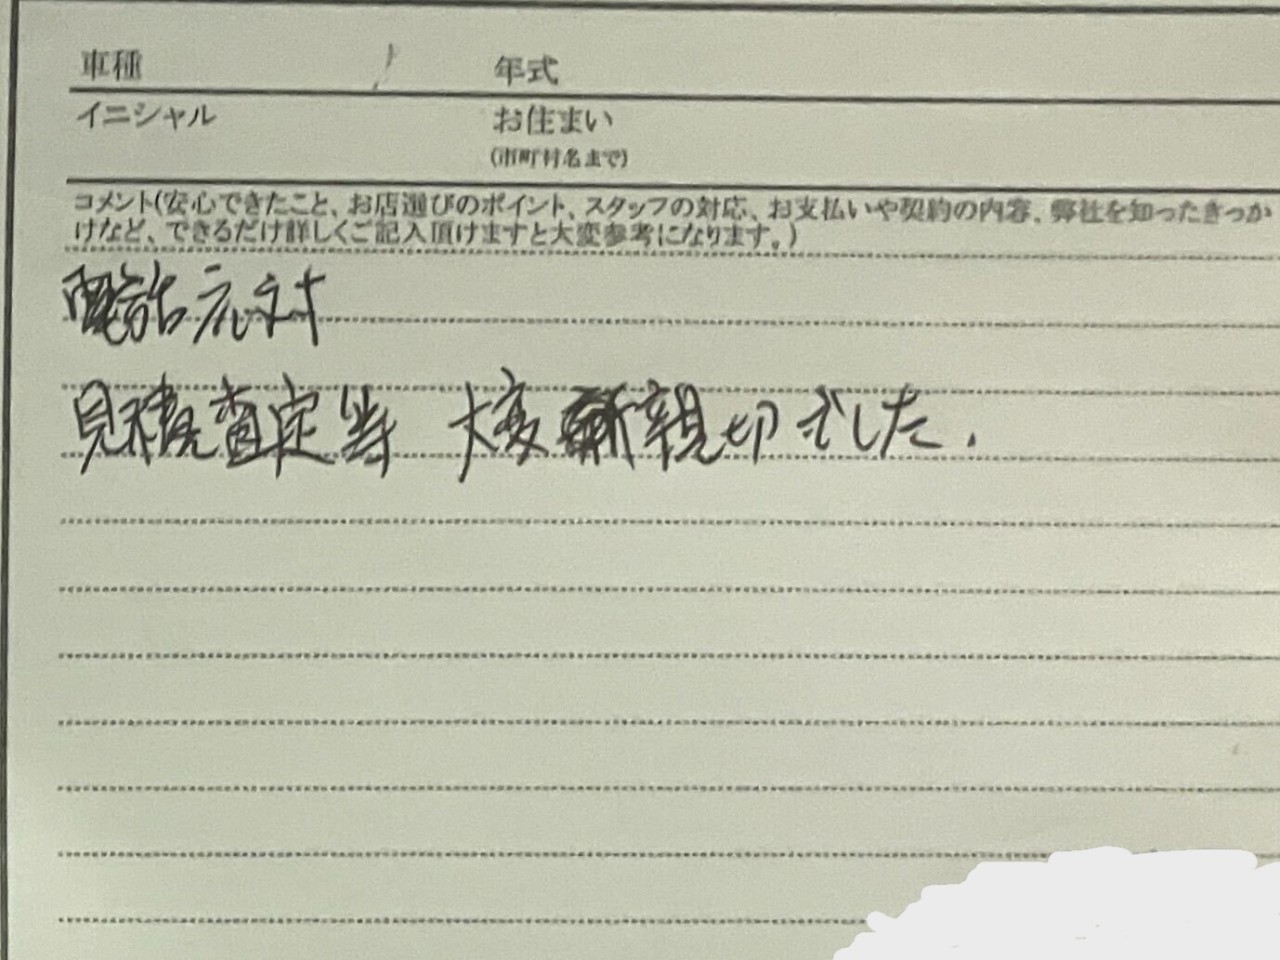 車種 年式
イニシャル お住まい
(市町村名まで)
コメント(安心できたこと、お店選びのポイント、スタッフの対応、お支払いや契約の内容、弊社を知ったきっか
けなど、できるだけ詳しくご記入頂けますと大変参考になります。)
電話応対
見積査定等 大変 親切でした.